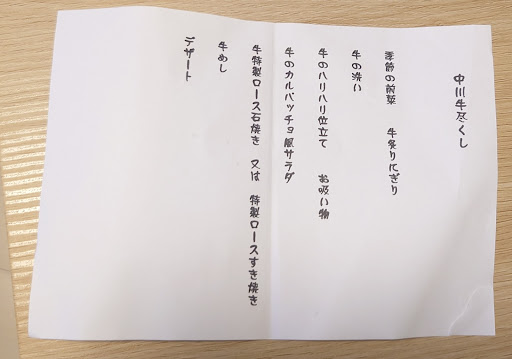 中川牛尽くし
季節の前菜　牛炙りにぎり
牛の洗い
牛のハリハリ位立て　お吸い物
牛のカルパッチョ風サラダ
牛特製ロース石焼き　又は　特製ロースすき焼き
牛めし
デザート